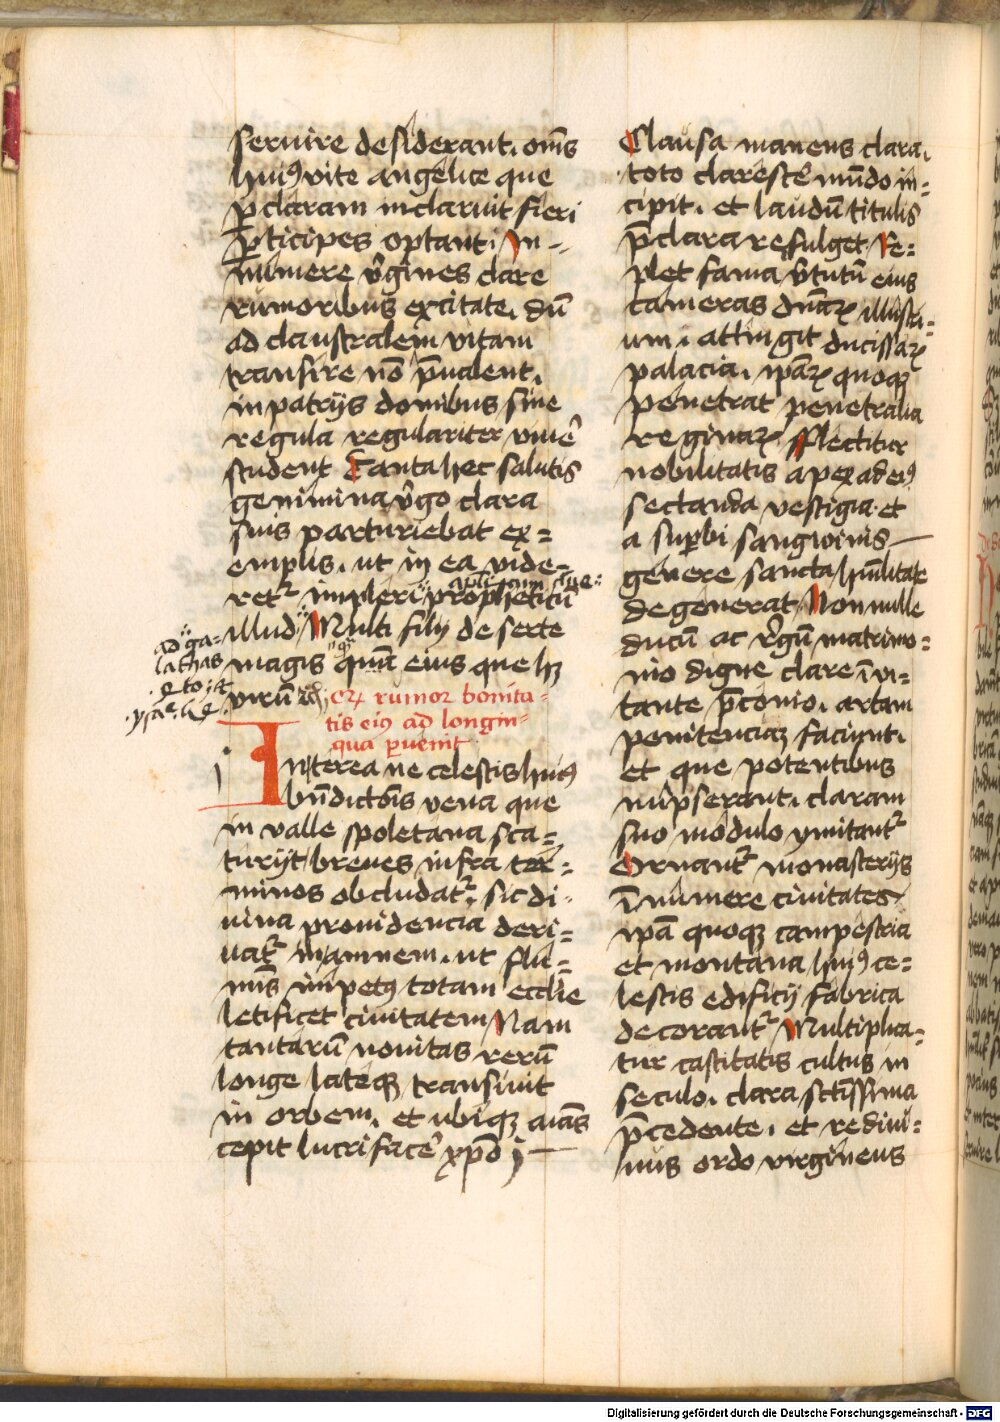 seruire desiderant. om̅s
huiꝰ vite angelice que
p̱claram inclaruit fieri
ꝑticipes optant. In-
numere v̓gines clare
rumoribus excitate. dū
ad claustralem vitam
transire nō p̄ualent.
in patrijs domibus sine
regula regulariter viuē
student Tanta hec salutis
genimina v̓go clara
suis parturiebat ex=
emplis. ut in ea vide=
retꝛ impleri propheticū
illud Multi filij deserte
magis quā eius que hꝫ
virū
ad ga=
lathas
.4to. et
.ysaᵉ.
eꝝ rumor bonita=
tis eiꝰ ad longin=
qua peruenit
i
Interea ne celestis huiꝰ
bn̄dictōis vena que
in valle spoletana sca=
turijt breues infra ter=
minos obcludatꝛ. sic di-
uina prouidencia deri=
uatꝛ in amnem. ut flu=
mīs impetꝰ totam ecclīe
letificet ciuitatem Nam
tantarū nouitas rerū
longe lateqꝫ transiuit
in orbem. et ubiqꝫ aīas
cepit lucrifacē xp̄o j
Clausa manens clara.
toto clarescē mūdo in=
cipit. et laudū titulis
p̄clara refulget Re=
plet fama v̓tutū eius
cameras dn̄aꝝ illustri=
um. attingit ducissaꝝ
palacia. ipāꝝ quoqꝫ
penetrat penetralia
reginaꝝ fflectitur
nobilitatis apex ad eiꝰ
sectanda vestigia. et
a suꝑbi sangwinis
genere sancta hūilitate
degenerat Nonnulle
ducū ac r̓gū matrimo=
nio digne clare īui=
tante p̄conio. artam
penitenciaꝫ faciunt.
et que potentibus
nupserant. claram
suo modulo ymitantꝛ
Ornantꝛ monasterijs
īnumere ciuitates
ipā quoqꝫ campestria
et montana huiꝰ ce=
lestis edificij fabrica
decorantꝛ Multiplica=
tur castitatis cultus in
seculo. clara sctīssima
p̄cedente. et rediui=
uus ordo virgineus
Digitalisierung gefördert durch die Deutsche Forschungsgemeinschaft - DFG